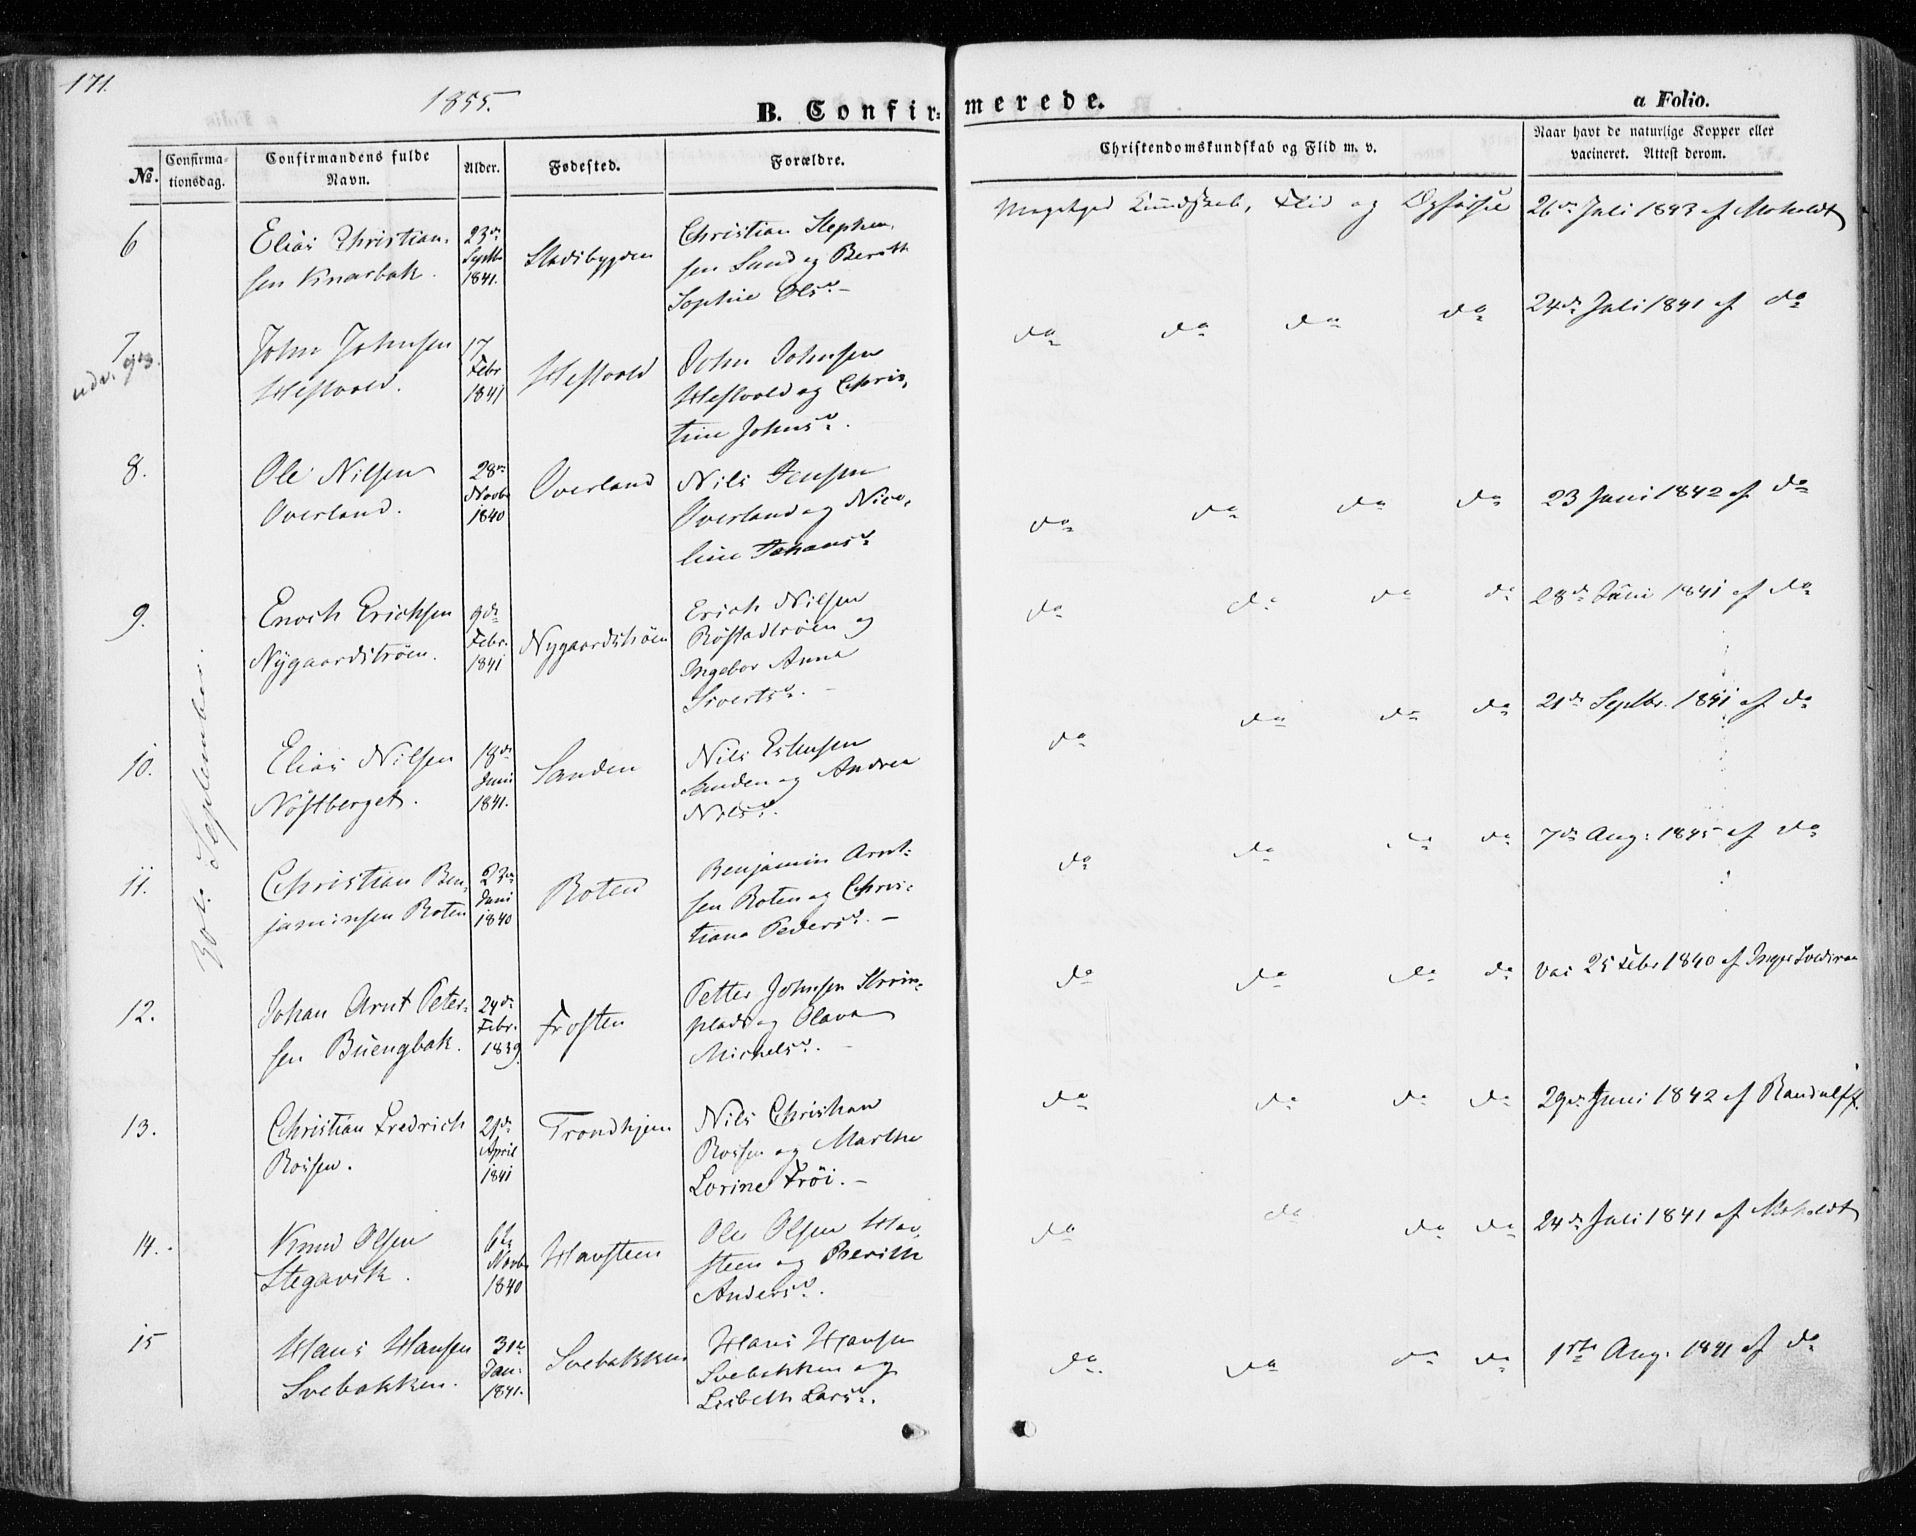 171.
1855.
B. Confirmerede.
a Folio.
No.
Confirma-
tionsdag.
Confirmandens fulde
Navn.
Alder.
Fødested.
Forældre.
Christendomskundskab og Flid m. v.
Naar havt de naturlige Kopper eller
vacineret. Attest derom.
30t. September.
6
Elias Christian-
sen Knarbak.
23de
Septb.
1841.
Stadsbygden
Christian Stephen-
sen Sund og Berith
Sophie Olsd. -
Kundskab, Flid og Opførsel
26de Juli 1843 af Moholdt
7
udv.
John Johnsen
Hestvold.
17
Febr
1841
Hestvold
John Johnsen
Hestvold og Chris-
tine Johnsd.
do do do do
24de Juli 1841 af do
8.
Ole Nilsen
Overland.
28de
Novbr
1840
Overland
Nils Jensen
Overland og Nico-
line Johansd.
do do do do
23 Juni 1842 af do
9.
Enoch Erichsen
Nygaardstrøen.
9de
Febr.
1841
Nygaardstrøen
Erich Nilsen
Røstadtrøen og
Ingebor Anna
Sivertsd. -
do do do do
28de Juni 1841 af do
10.
Elias Nilsen
Nøstberget.
18de
Juni
1841.
Sanden
Nils Estensen
Sanden og Andrea
Nilsd.
do do do do
21de Septbr. 1841 af do
11.
Christian Ben-
jaminsen Roten
23de
Juni
1840
Roten
Benjamin Arnt-
sen Roten og Chris-
tiana Pedersd. -
do do do do
7de Aug: 1845 af do
12.
Johan Arnt Peter-
sen Buengbak.
24de
Febr.
1839.
Frosten
Petter Johnsen
plads og Olava
Michelsd. -
do do do do
vac 25 Febr 1840 af
13.
Christian Fredrich
Rossen.
21de
April
1841
Trondhjem
Nils Christian
Rossen og Marthe
Lorine Frøi. -
do do do do
29de Juni 1842 af Randulff.
14.
Knud Olsen
Stegavik.
6te
Novbr
1840
Havsteen
Ole Olsen Hav-
steen og Berith
Andersd.
do do do do
24de Juli 1841 af Moholdt
15
Hans Hansen
Svebakken.
31te
Jan:
1841.
Svebakken
Hans Hansen
Svebakken og
Lisbeth Larsd.
do do do do
1ste Aug: 1841 af do